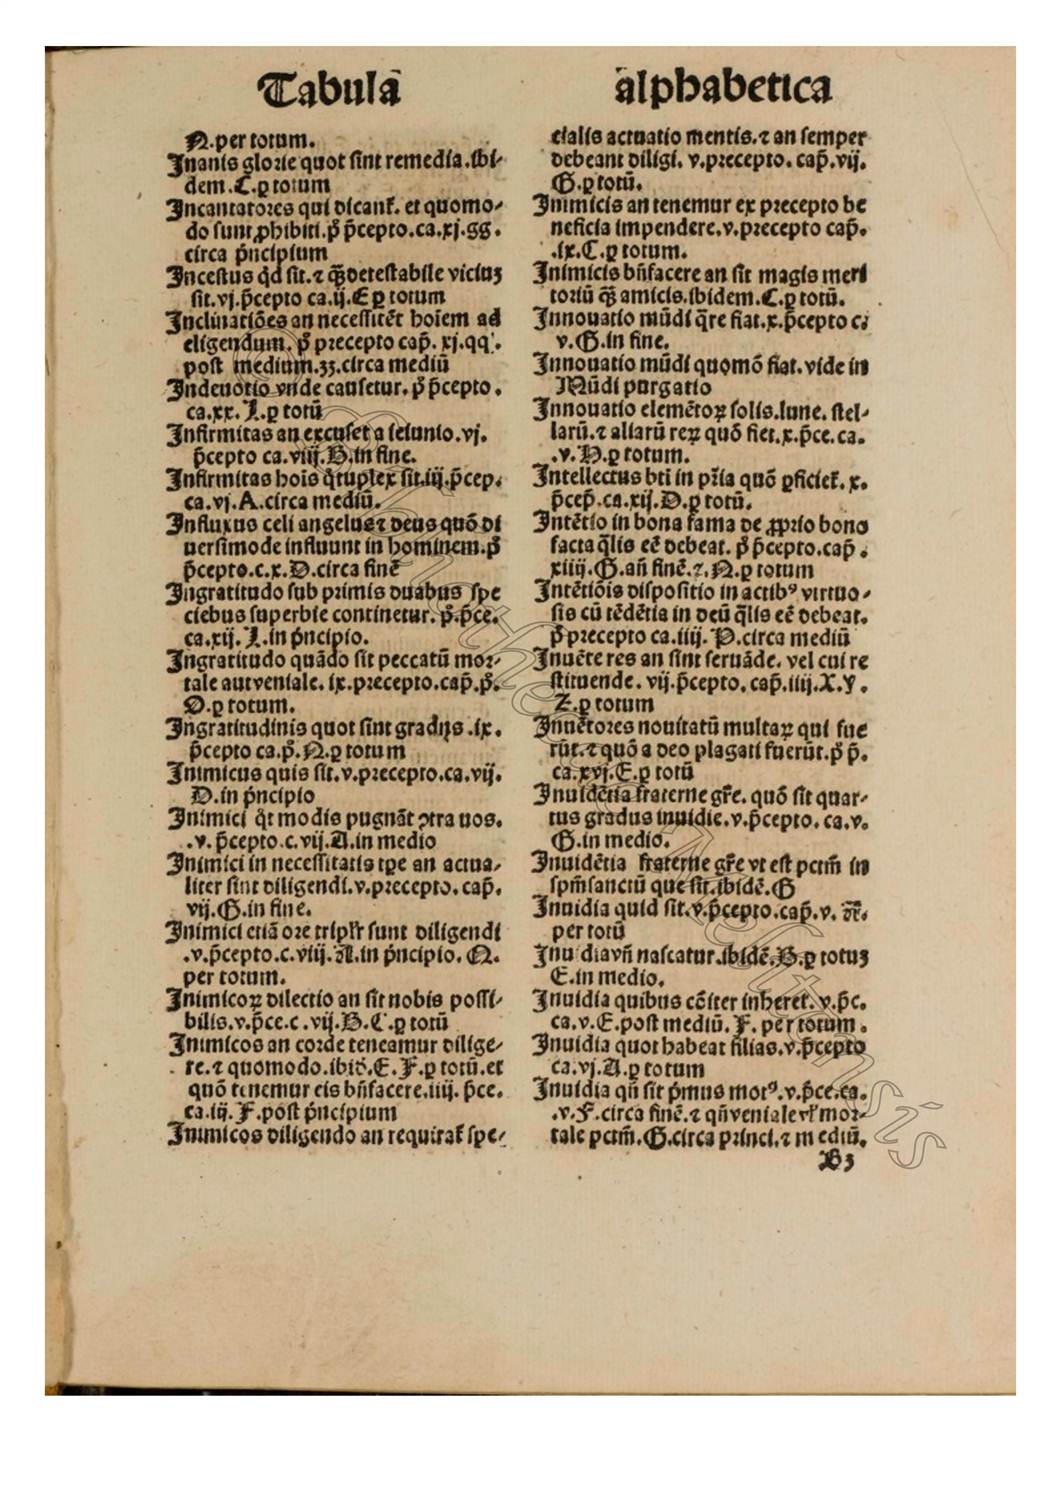 Tabula alphabetica
N.per totum.
Inanis glorie quot sint remedia.ibi-
dem.C.ꝑ totum
Incantatores qui dicant̄. et quomo-
do sunt ꝓhibiti.pͦ p̄cepto.ca.xj.gg.
circa p̄ncipium
Incestus qd̄ sit.⁊ qꝫ̄ detestabile viciuꝫ
sit.vj.p̄cepto ca.ij.E ꝑ totum
Inclinatiōes an necessitēt hoīem ad
eligendum. pͦ precepto cap̄. xj.qq.
post medium.ʒʒ.circa mediū
Indeuotio vnde causetur. pͦ p̄cepto.
ca.xx. I.ꝑ totū
Infirmitas an excuset a ieiunio.vj.
p̄cepto ca.viij.B.in fine.
Infirmitas hoīs qͣtuplex sit.iij.p̄cep.
ca.vj.A.circa mediū.
Influxus celi angelus ⁊ deus quō di
uersimode influunt in hominem.pͦ
p̄cepto.c.x.D.circa finē
Ingratitudo sub primis duabus spe
ciebus superbie continetur. pͦ.p̄ce.
ca.xij. I.in p̄ncipio.
Ingratitudo quādo sit peccatū mor-
tale aut veniale. ix.precepto.cap̄.pͦ.
O.ꝑ totum.
Ingratitudinis quot sint gradus.ix.
p̄cepto ca.pͦ.N.ꝑ totum
Inimicus quis sit.v.precepto.ca.vij.
D.in p̄ncipio
Inimici qͦt modis pugnāt ꝯtra uos.
.v. p̄cepto.c.vij.A.in medio
Inimici in necessitatis tꝑe an actua-
liter sint diligendi.v.precepto. cap̄.
vij.G.in fine.
Inimici etiā ore triplr̄ sunt diligendi
.v.p̄cepto.c.viij.M.in p̄ncipio. N.
per totum.
Inimicoꝝ dilectio an sit nobis possi-
bilis.v.p̄ce.c.vij.B.C.ꝑ totū
Inimicos an corde teneamur dilige-
re.⁊ quomodo.ibid̄.E.F.ꝑ totū.et
quō tenemur eis bn̄facere.iiij. p̄ce.
ca.iij. F.post p̄ncipium
Inimicos diligendo an requirat̄ spe-
cialis actuatio mentis.⁊ an semper
debeant diligi. v.precepto. cap̄. vij.
G.ꝑ totū.
Inimicis an tenemur ex precepto be
neficia impendere.v.precepto cap̄.
.ix.C.ꝑ totum.
Inimicis bn̄facere an sit magis meri
toriū qꝫ̄ amicis.ibidem.C.ꝑ totū.
Innouatio mūdi qͣre fiat.x.p̄cepto c.
v.G.in fine.
Innouatio mūdi quomō fiat. vide in
Mūdi purgatio
Innouatio elemētoꝝ solis.lune. stel-
larū.⁊ aliarū reꝝ quō fiet.x.p̄ce.ca.
.v.H.ꝑ totum.
Intellectus bt̄i in pr̄ia quō ꝑficiet̄. x.
p̄cep̄.ca.xij.D.ꝑ totū.
Intētio in bona fama de ꝓprio bono
facta qͣlis eē debeat. pͦ p̄cepto.cap̄.
xiiij.G.an̄ finē.⁊.N.ꝑ totum
Intētiōis dispositio in actibꝰ virtuo-
sis cū tēdētia in deū qͣlis eē debeat.
pͦ precepto ca.iiij. P.circa mediū
Inuēte res an sint seruāde. vel cui re
stituende. vij.p̄cepto. cap̄.iiij.X.Y.
Z.ꝑ totum
Inuētores nouitatū multaꝝ qui fue
rūt.⁊ quō a deo plagati fuerūt.pͦ p̄.
ca.xvj.E.ꝑ totū
Inuidētia fraterne gr̄e. quō sit quar-
tus gradus inuidie.v.p̄cepto. ca.v.
G.in medio.
Inuidētia fraterne gr̄e vt est pctm̄ in
spm̄sanctū que sit.ibidē.G
Inuidia quid sit.v.p̄cepto.cap̄.v.
per totū
Inuidia vn̄ nascatur.ibidē.B.ꝑ totuꝫ
E.in medio.
Inuidia quibus cōiter inheret̄. v.p̄c.
ca.v.E.post mediū. F. per totum.
Inuidia quot habeat filias.v.p̄cepto
ca.vj.A.ꝑ totum
Inuidia qn̄ sit p̄mus motꝰ.v.p̄ce.ca.
.v.F.circa finē.⁊ qn̄ veniale vl̄ mor-
tale pctm̄.G.circa princi.⁊ mediū.
B3
Bibliotheca Alesiensis